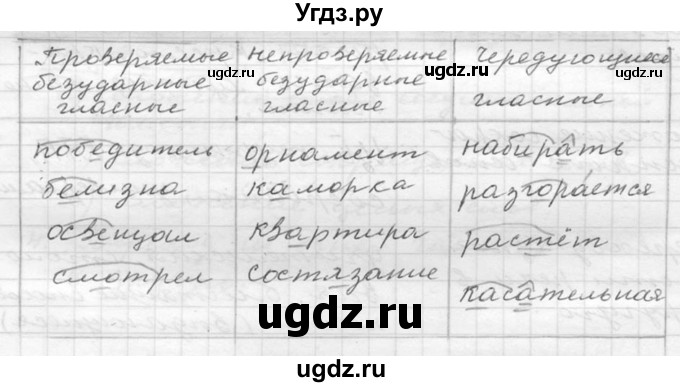 Угдз.ру
Проверяемые безударные гласные
непроверяемые безударные гласные
Чередующиеся гласные
ugdz.ru
ugdz.ru
ugdz.ru
победитель
орнамент
набирать
белизна
каморка
разгорается
освещал
квартира
растёт
смотрел
состязание
касательная
ugdz.ru
ugdz.ru
ugdz.ru
ugdz.ru
ugdz.ru